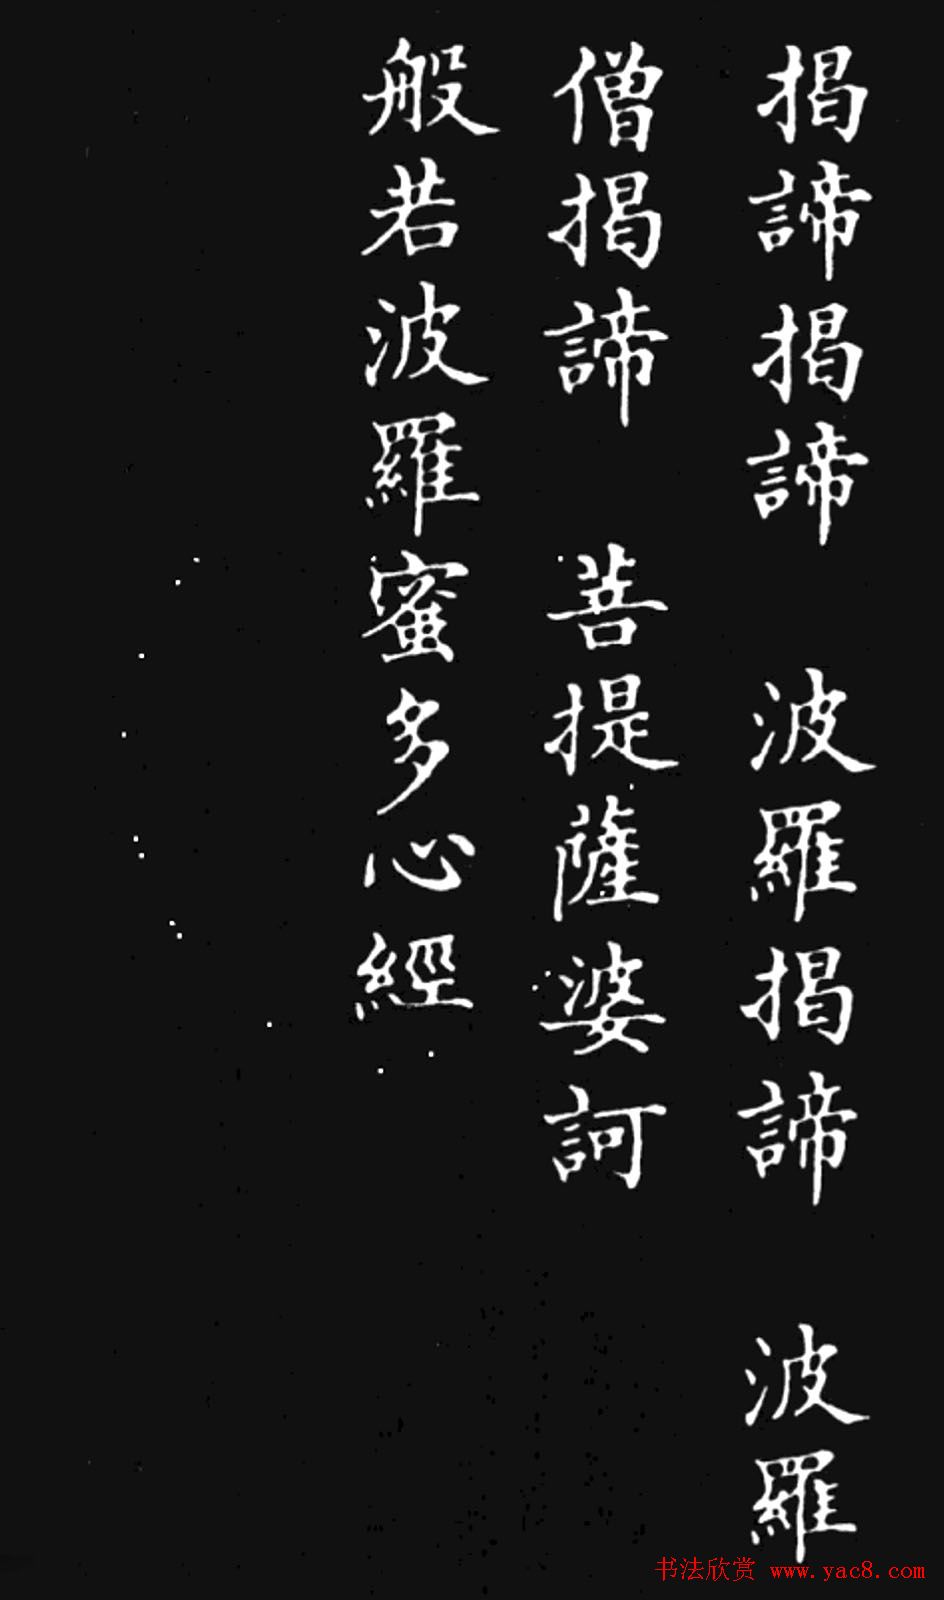 揭諦揭諦 波羅揭諦 波羅
僧揭諦 菩提薩婆訶
般若波羅蜜多心經
书法欣赏 www.yac8.com